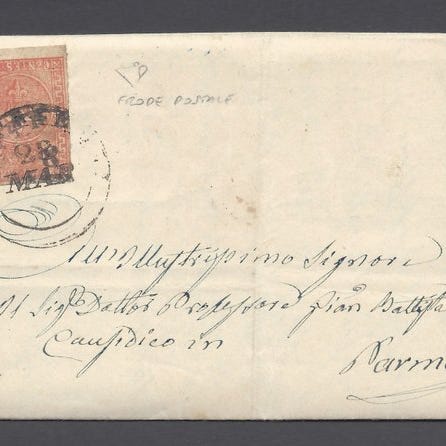 FRODE POSTALE
28
MAR
All' Illustrissimo Signore
Il Sigr. Dottor Professore Gian Batta
Causidico in
Parma